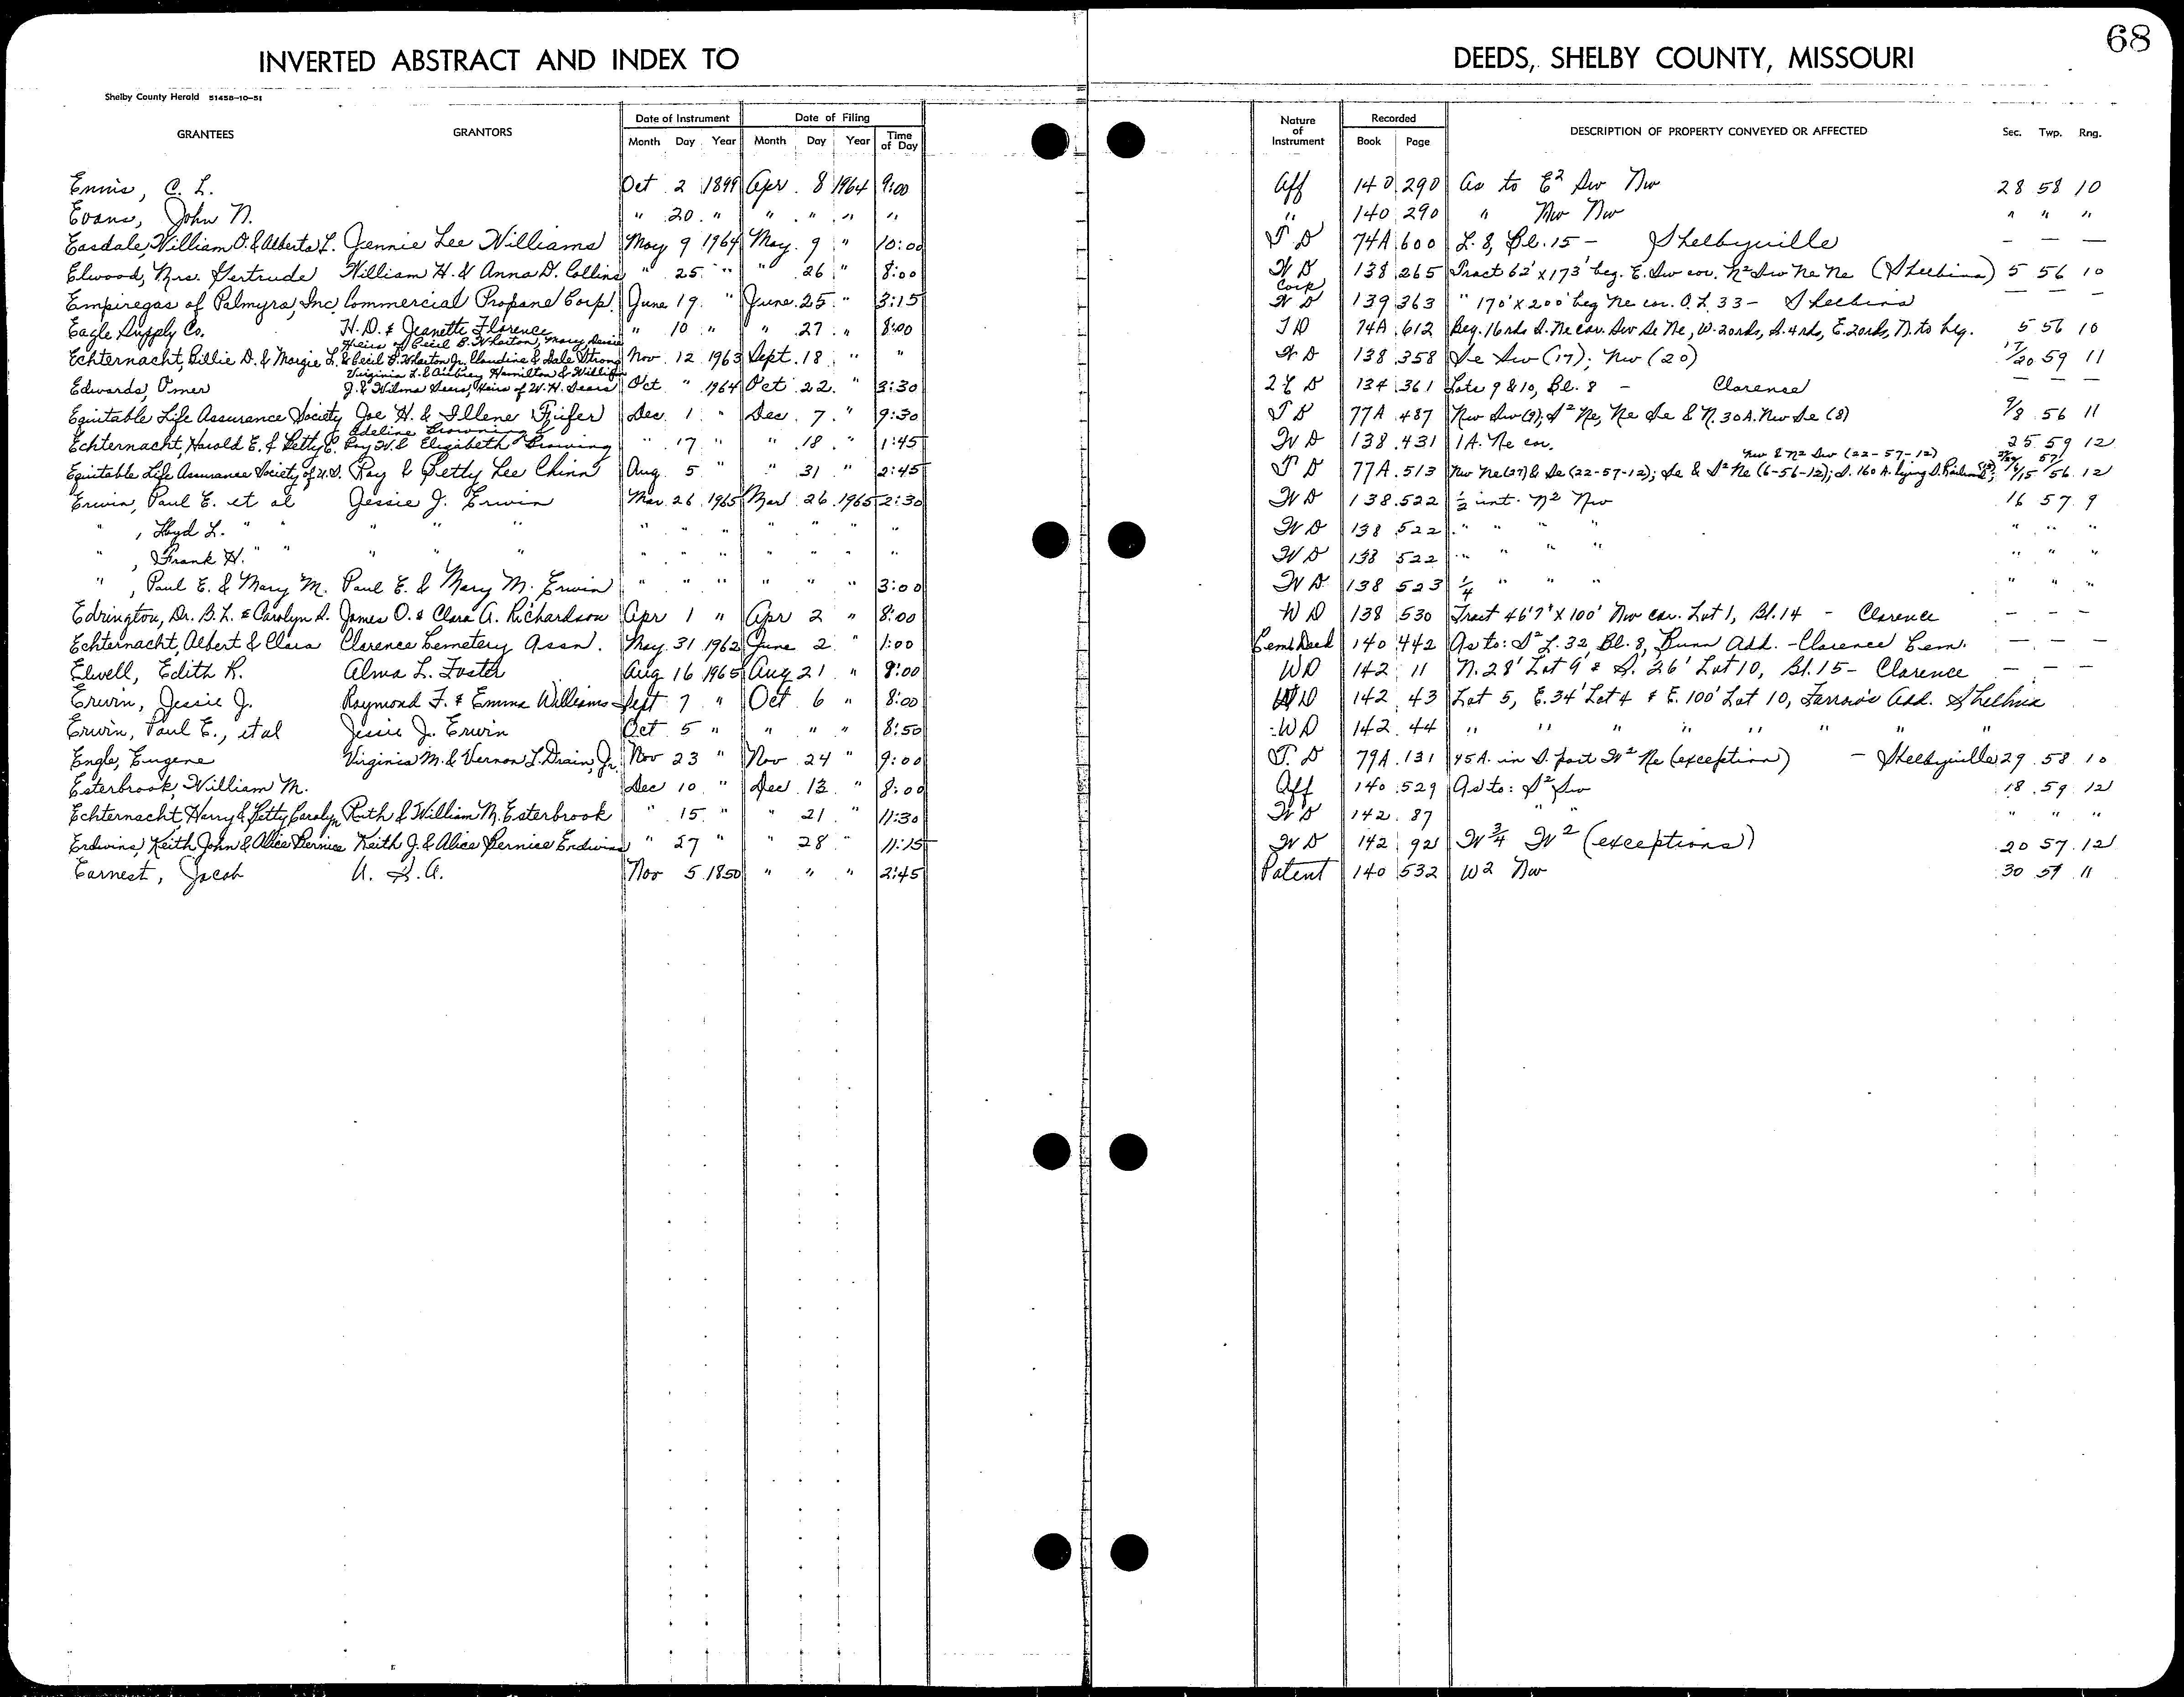 68
INVERTED ABSTRACT AND INDEX TO DEEDS, SHELBY COUNTY, MISSOURI
Shelby County Herald 51458-10-51
GRANTEES GRANTORS Date of Instrument Date of Filing Nature of Instrument Recorded DESCRIPTION OF PROPERTY CONVEYED OR AFFECTED Sec. Twp. Rng.
Month Day Year Month Day Year Time of Day Book Page
Ennis, C. L. Oct 2 1899 Apr. 8 1964 9:00 Aff 140 290 As to E2 Sw Nw 28 58 10
Evans, John N. " 20 " " " " " " 140 290 " Nw Nw " " "
Easdale, William O. & Alberta L. Jennie Lee Williams May 9 1964 May 9 " 10:00 T D 74A 600 L. 8, Bl. 15 - Shelbyville — — —
Elwood, Mrs. Gertrude William H. & Anna D. Collins " 25 " " 26 " 8:00 W D 138 265 Tract 62' x 173' beg. E. Sw cor. N2 Sw Ne Ne (Shelbina) 5 56 10
Empiregas of Palmyra, Inc. Commercial Propane Corp. June 19 " June 25 " 3:15 Corp W D 139 363 " 170' x 200' beg Ne cor. O.L. 33 - Shelbina — — —
Eagle Supply Co. H. D. & Jeanette Florence " 10 " " 27 " 8:00 T D 74A 612 Beg. 16 rds S. Ne cor. Sw Se Ne, W. 20 rds, S. 4 rds, E. 20 rds, N. to beg. 5 56 10
Heirs of Cecil B. Wharton, Mary Denise
Echternacht, Billie D. & Margie L. & Cecil B. Wharton Jr., Claudine & Dale Strong Nov 12 1963 Sept. 18 " " W D 138 358 Se Sw (17); Nw (20) 17/20 59 11
Virginia L. & Aubrey Hamilton & William
Edwards, Omer J. & Wilma Sears, Heirs of W. H. Sears Oct " 1964 Oct 22 " 3:30 2 C D 134 361 Lots 9 & 10, Bl. 8 - Clarence — — —
Equitable Life Assurance Society Joe H. & Illene Fifer Dec. 1 " Dec. 7 " 9:30 T D 77A 487 Nw Sw (9); S2 Ne, Ne Se & N. 30 A. Nw Se (8) 9/8 56 11
Adeline Browning &
Echternacht, Harold E. & Betty C. Roy W. & Elizabeth Browning " 17 " " 18 " 1:45 W D 138 431 1 A. Ne cor. 25 59 12
Nw & N2 Sw (22-57-12)
Equitable Life Assurance Society of U.S. Ray & Betty Lee Chinn Aug. 5 " " 31 " 2:45 T D 77A 513 Nw Ne (27) & Se (22-57-12); Se & S2 Ne (6-56-12); S. 160 A. lying S. Railroad 56 12
Erwin, Paul E. et al Jessie J. Erwin Mar. 26 1965 Mar 26 1965 2:30 W D 138 522 1/2 int. N2 Nw 16 57 9
" , Loyd L. " " " " " " " " " " " " W D 138 522 " " " " " " "
" , Frank H. " " " " " " " " " " " " W D 138 522 " " " " " " "
" , Paul E. & Mary M. Paul E. & Mary M. Erwin " " " " " " 3:00 W D 138 523 1/4 " " " " " "
Edrington, Dr. B. L. & Carolyn S. James O. & Clara A. Richardson Apr 1 " Apr 2 " 8:00 W D 138 530 Tract 46'7" x 100' Nw cor. Lot 1, Bl. 14 - Clarence - - -
Echternacht, Albert & Clara Clarence Cemetery Assn. May 31 1962 June 2 " 1:00 Cem. Deed 140 442 As to: S2 L. 32, Bl. 8, Bunn Add. - Clarence Cem. — — —
Elwell, Edith R. Alma L. Foster Aug 16 1965 Aug 21 " 8:00 WD 142 11 N. 28' Lot 9 & S. 26' Lot 10, Bl. 15 - Clarence — — —
Erwin, Jessie J. Raymond F. & Emma Williams Sept 7 " Oct 6 " 8:00 WD 142 43 Lot 5, E. 34' Lot 4 & E. 100' Lot 10, Farrow's Add. Shelbina
Erwin, Paul E., et al Jessie J. Erwin Oct 5 " " " " 8:50 WD 142 44 " " " " " " " "
Engle, Eugene Virginia M. & Vernon L. Drain, Jr. Nov 23 " Nov 24 " 9:00 T. D 79A 131 45 A. in S. part W2 Ne (exception) - Shelbyville 29 58 10
Esterbrook, William M. Dec 10 " Dec 13 " 8:00 Aff 140 529 As to: S2 Sw 18 59 12
Echternacht, Harry & Betty Carolyn Ruth & William M. Esterbrook " 15 " " 21 " 11:30 W D 142 87 " " " " "
Erdwins, Keith John & Alice Bernice Keith J. & Alice Bernice Erdwins " 27 " " 28 " 11:15 W D 142 92 W 3/4 W2 (exceptions) 20 57 12
Earnest, Jacob U. S. A. Nov 5 1850 " " " 2:45 Patent 140 532 W2 Nw 30 59 11